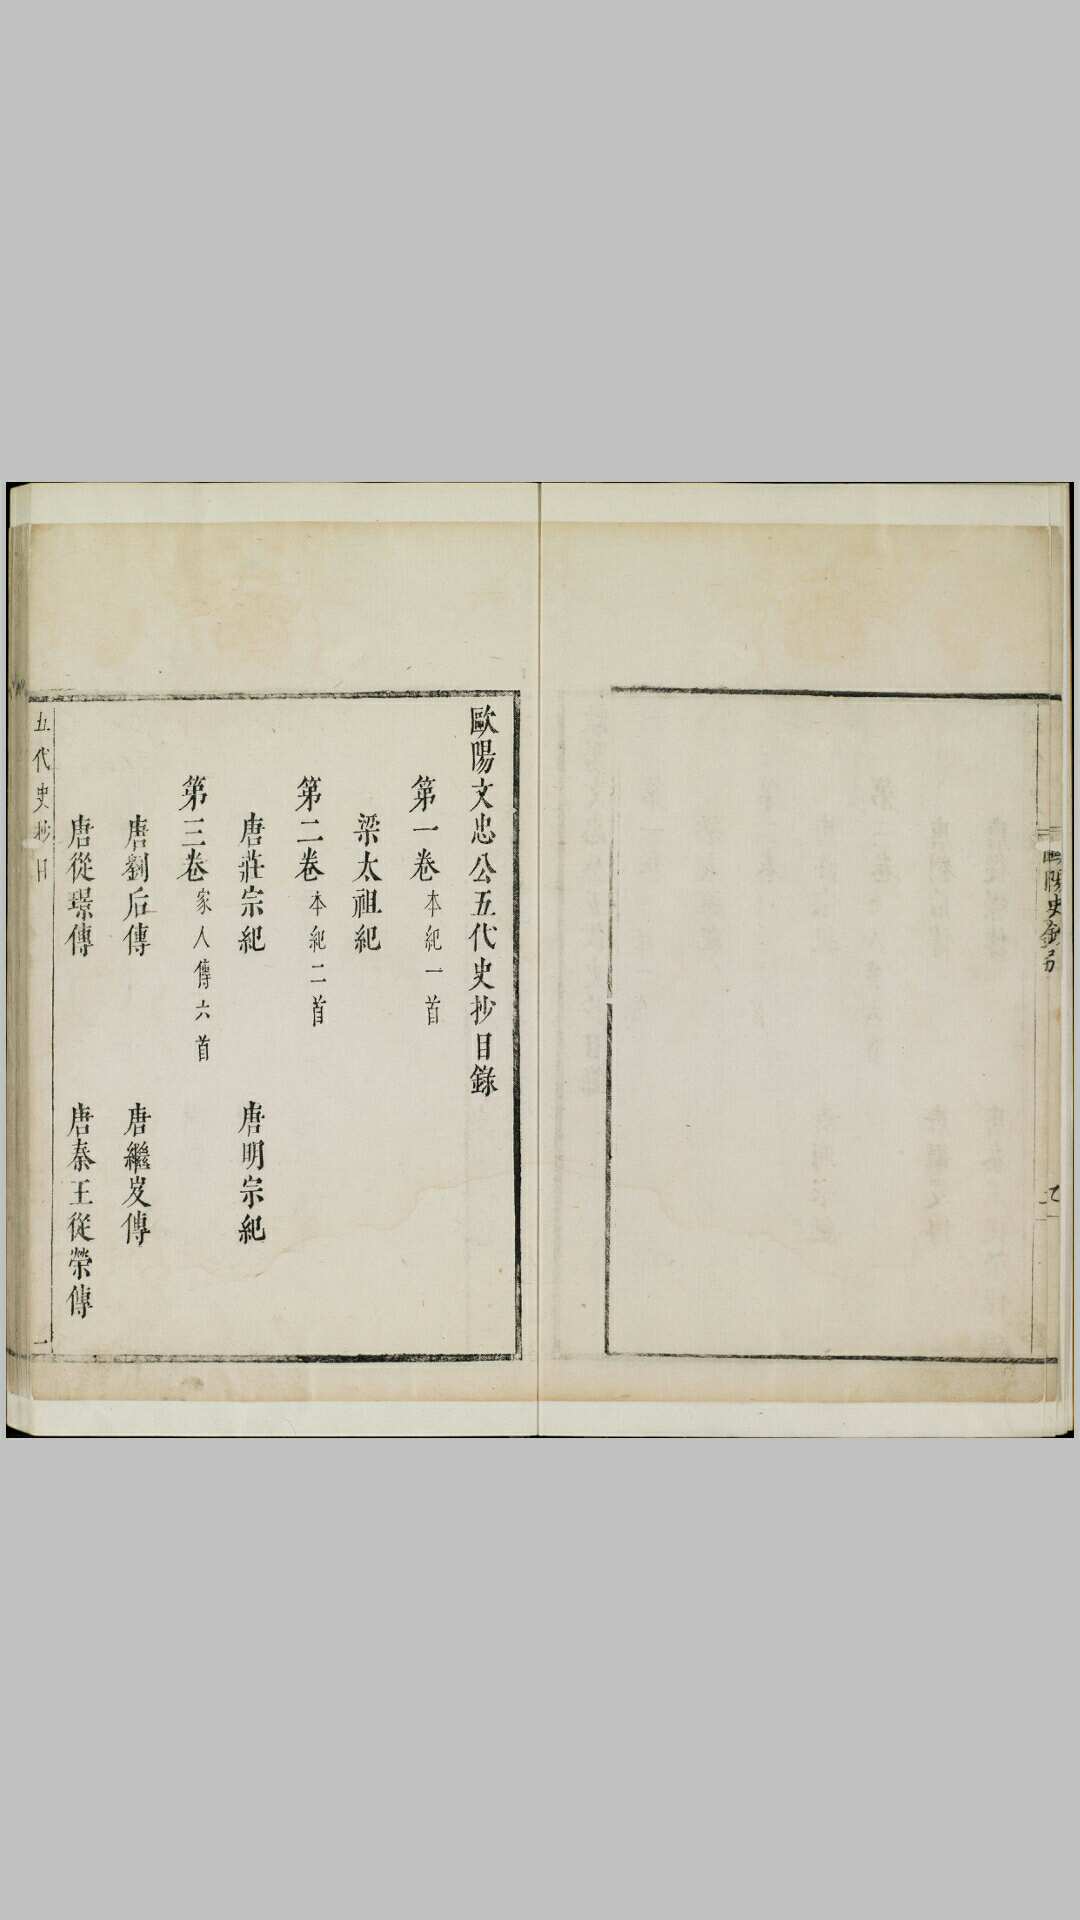 歐陽文忠公五代史抄目錄
第一卷 本紀一首
梁太祖紀
第二卷 本紀二首
唐莊宗紀 唐明宗紀
第三卷 家人傳六首
唐劉后傳 唐繼岌傳
唐從璟傳 唐秦王從榮傳
五代史抄目 一